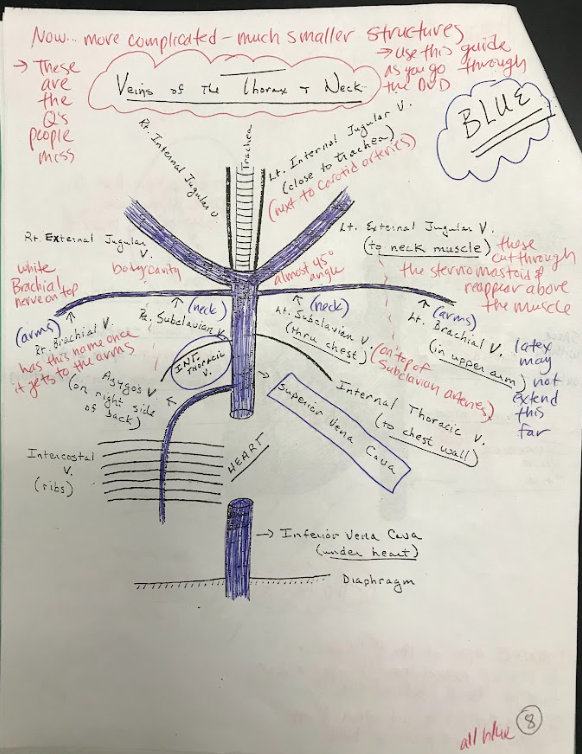 Now... more complicated - much smaller structures
→ These
are
the
Q's
people
miss
→ use this guide
as you go through
the DVD
Veins of The Thorax + Neck
BLUE
Rt. Internal Jugular V.
Trachea
Lt. Internal Jugular V.
(close to trachea)
(next to carotid arteries)
Rt. External Jugular
V.
Lt. External Jugular V.
(to neck muscle)
these
cut through
the sternomastoid &
reappear above
the muscle
white
Brachial
nerve on top
body cavity
almost 45°
angle
(arms)
(neck)
(neck)
(arms)
Rt. Brachial V.
has this name once
it gets to the arms
Rt. Subclavian V.
Lt. Subclavian V.
(thru chest)
(on top of
Subclavian arteries)
Lt. Brachial V.
(in upper arm)
latex
may
not
extend
this
far
INT.
THORACIC
V.
Azygos V
(on right side
of back)
Internal Thoracic V.
(to chest wall)
Superior Vena Cava
HEART
Intercostal
V.
(ribs)
→ Inferior Vena Cava
(under heart)
Diaphragm
all blue
8